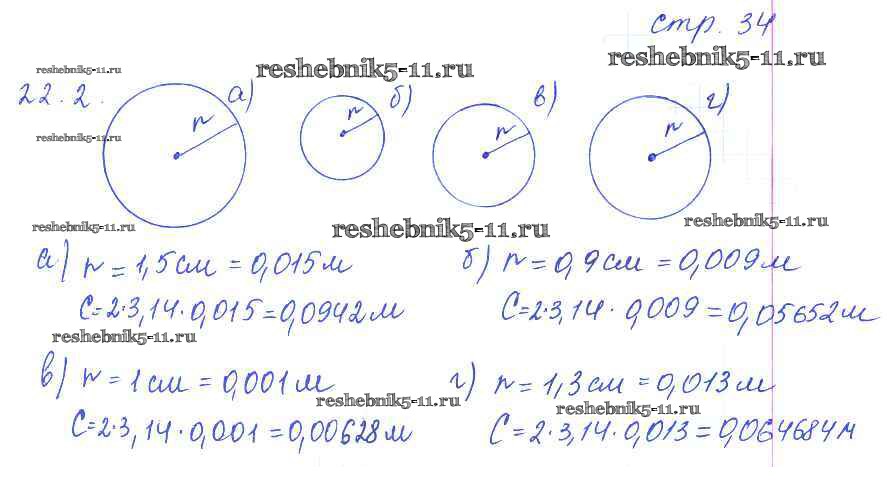 стр. 34
reshebnik5-11.ru
reshebnik5-11.ru reshebnik5-11.ru
22.2. а) б) в) г)
r r r r
reshebnik5-11.ru
reshebnik5-11.ru reshebnik5-11.ru reshebnik5-11.ru
а) r = 1,5 см = 0,015 м б) r = 0,9 см = 0,009 м
C = 2·3,14·0,015 = 0,0942 м C = 2·3,14·0,009 = 0,05652 м
reshebnik5-11.ru
в) r = 1 см = 0,001 м г) r = 1,3 см = 0,013 м
reshebnik5-11.ru reshebnik5-11.ru
C = 2·3,14·0,001 = 0,00628 м C = 2·3,14·0,013 = 0,064684 м